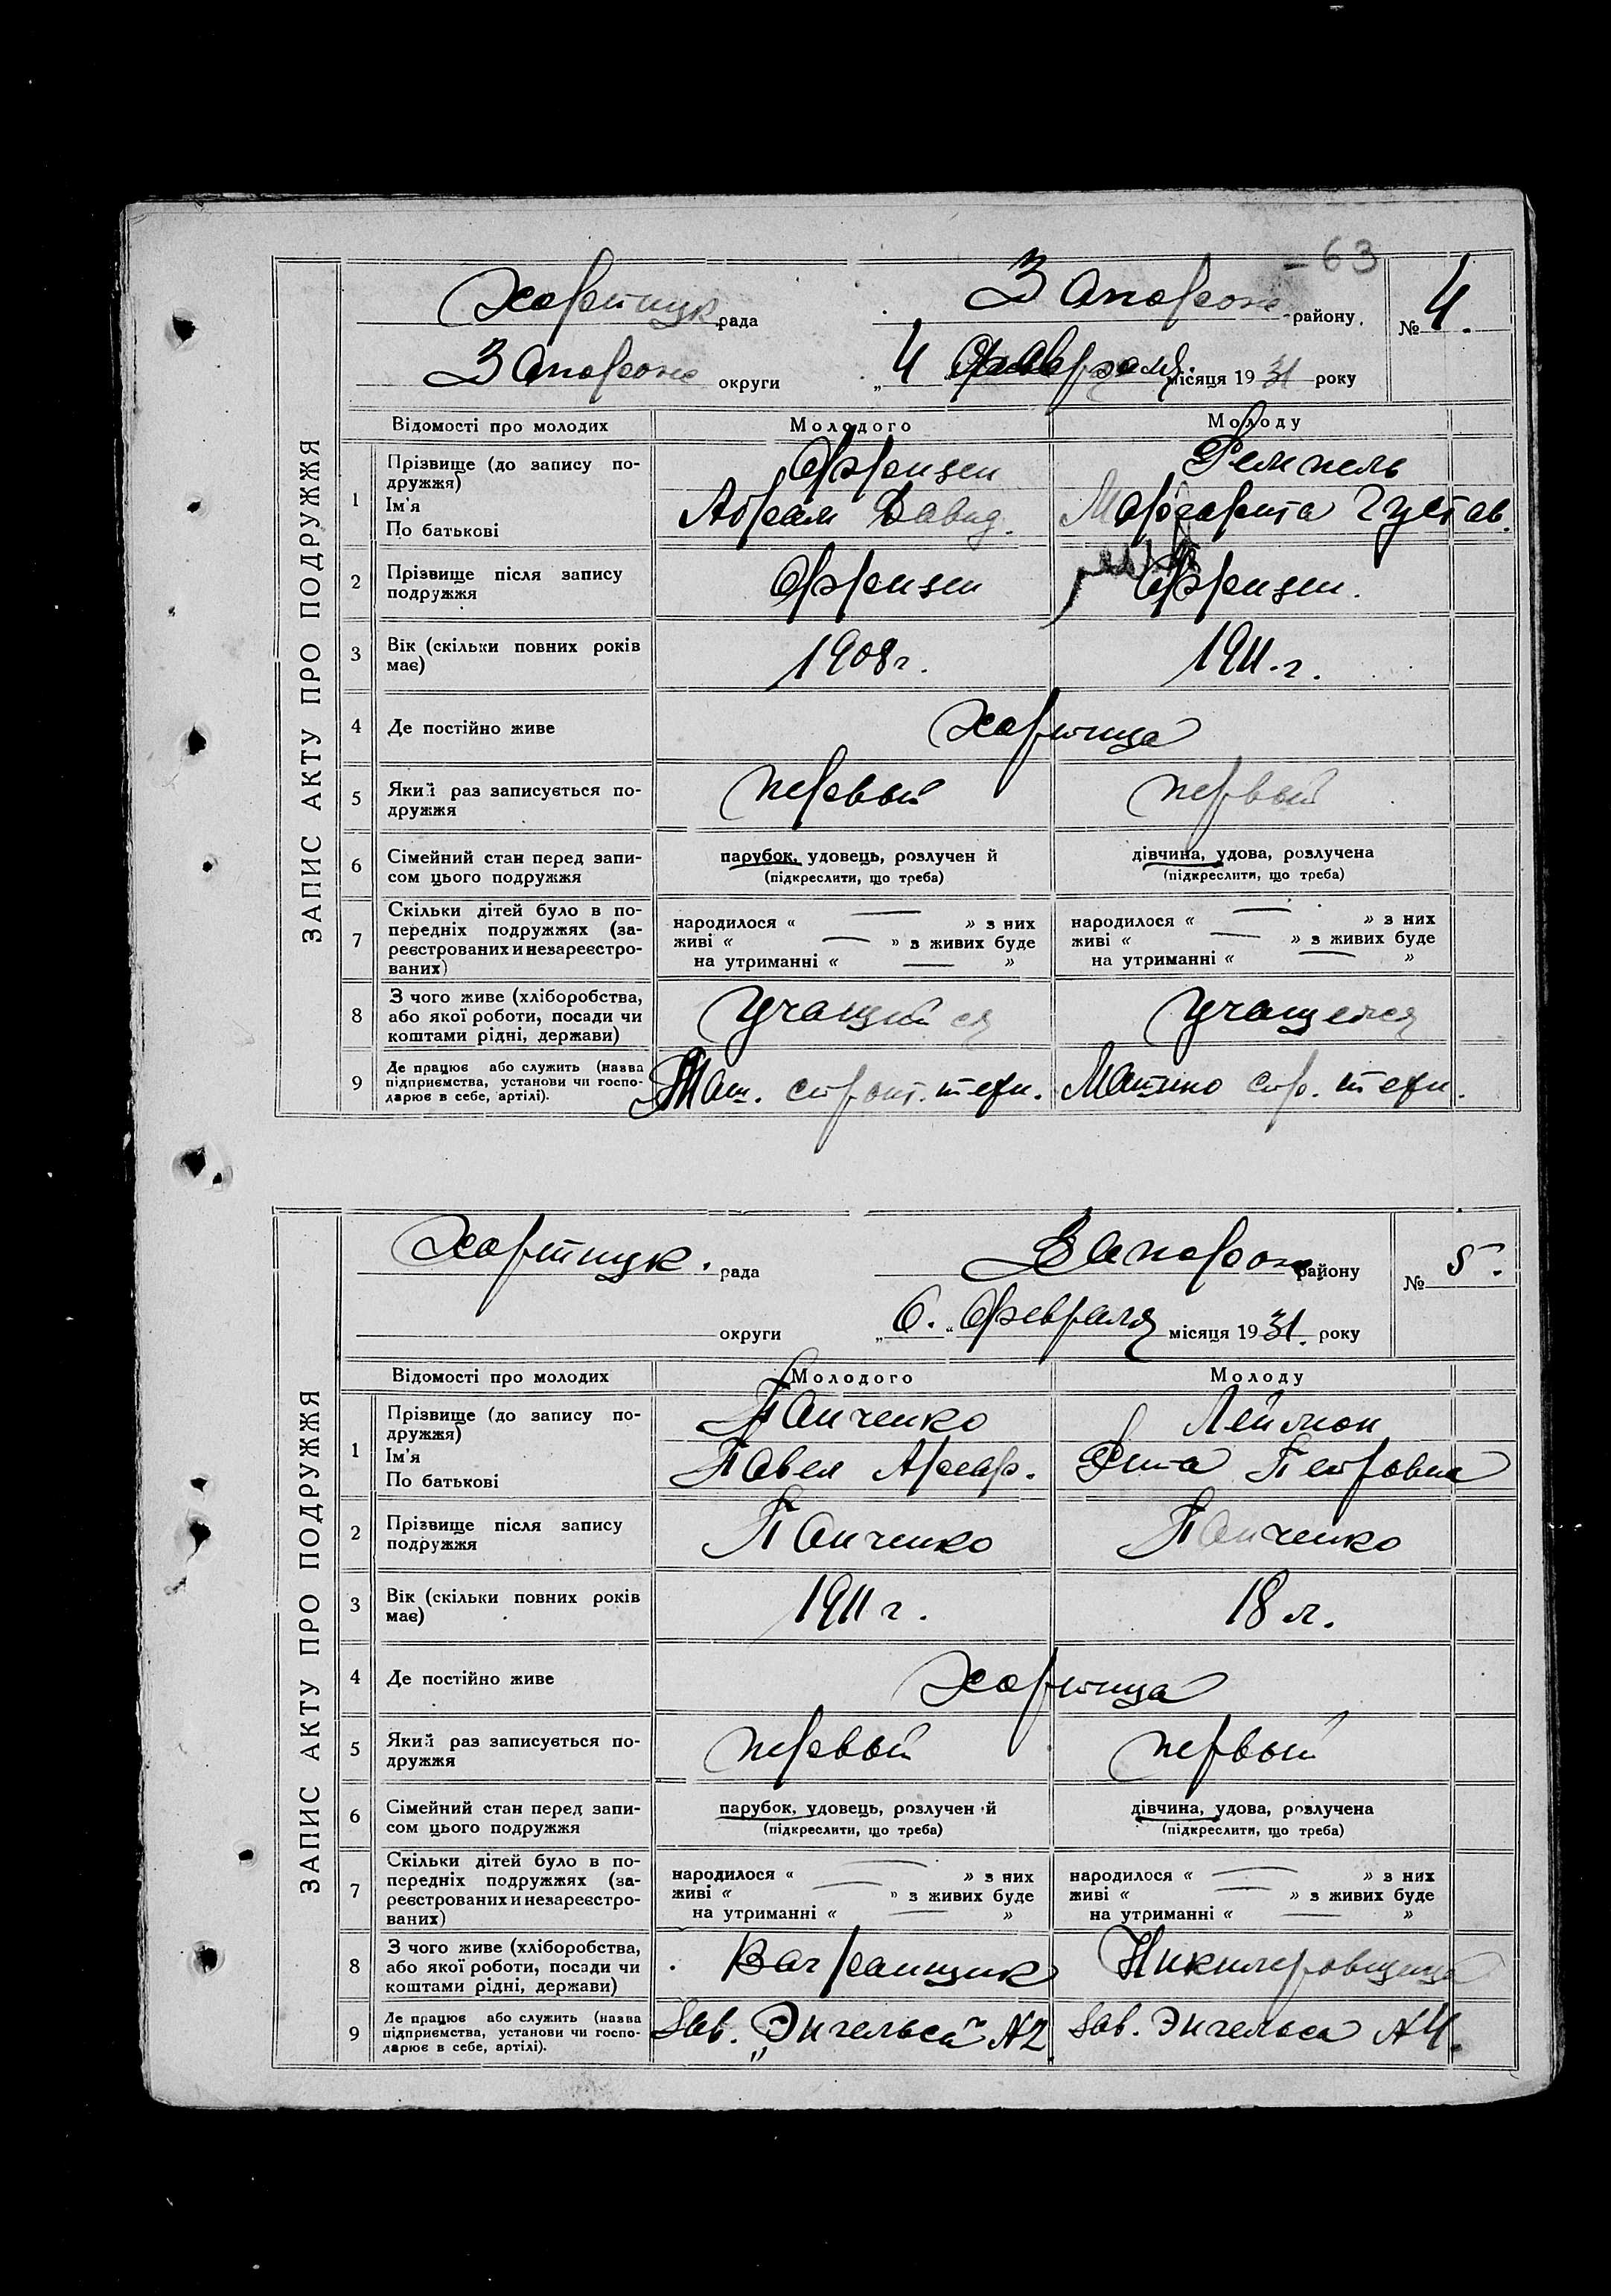 - 63
Хортицк. рада Запорож. району. № 4.
Запорож округи „ 4 февраля місяця 1931 року
ЗАПИС АКТУ ПРО ПОДРУЖЖЯ
Відомості про молодих Молодого Молоду
1 Прізвище (до запису по-
дружжя) Фризен Ремпель
Ім'я Абрам Давид. Маргарита Густав.
По батькові
2 Прізвище після запису
подружжя Фризен Фризен.
3 Вік (скільки повних років
має) 1908 г. 1911. г.
4 Де постійно живе Хортица
5 Який раз записується по-
дружжя первый первый
6 Сімейний стан перед запи-
сом цього подружжя парубок, удовець, розлучен й дівчина, удова, розлучена
(підкреслити, що треба) (підкреслити, що треба)
7 Скільки дітей було в по-
передніх подружжях (за-
реєстрованих и незареєстро-
ваних)
народилося « — » з них народилося « — » з них
живі « — » з живих буде живі « — » з живих буде
на утриманні « — » на утриманні « — »
8 З чого живе (хліборобства,
або якої роботи, посади чи
коштами рідні, держави) Учащийся Учащейся
9 Де працює або служить (назва
підприємства, установи чи госпо-
дарює в себе, артілі). Маш. строит. техн. Машино стр. техн.
Хортицк. рада Запорож. району № 5.
округи „ 6. “ февраля місяця 1931. року
ЗАПИС АКТУ ПРО ПОДРУЖЖЯ
Відомості про молодих Молодого Молоду
1 Прізвище (до запису по-
дружжя) Панченко
Ім'я Павел Петровна
По батькові
2 Прізвище після запису
подружжя Панченко Панченко
3 Вік (скільки повних років
має) 1911 г. 18 л.
4 Де постійно живе Хортица
5 Який раз записується по-
дружжя первый первый
6 Сімейний стан перед запи-
сом цього подружжя парубок, удовець, розлучен й дівчина, удова, розлучена
(підкреслити, що треба) (підкреслити, що треба)
7 Скільки дітей було в по-
передніх подружжях (за-
реєстрованих и незареєстро-
ваних)
народилося « — » з них народилося « — » з них
живі « — » з живих буде живі « — » з живих буде
на утриманні « — » на утриманні « — »
8 З чого живе (хліборобства,
або якої роботи, посади чи
коштами рідні, держави) Вагранщик Никилировщица
9 Де працює або служить (назва
підприємства, установи чи госпо-
дарює в себе, артілі). Зав. „Энгельса“ №2 Зав. Энгельса №4.